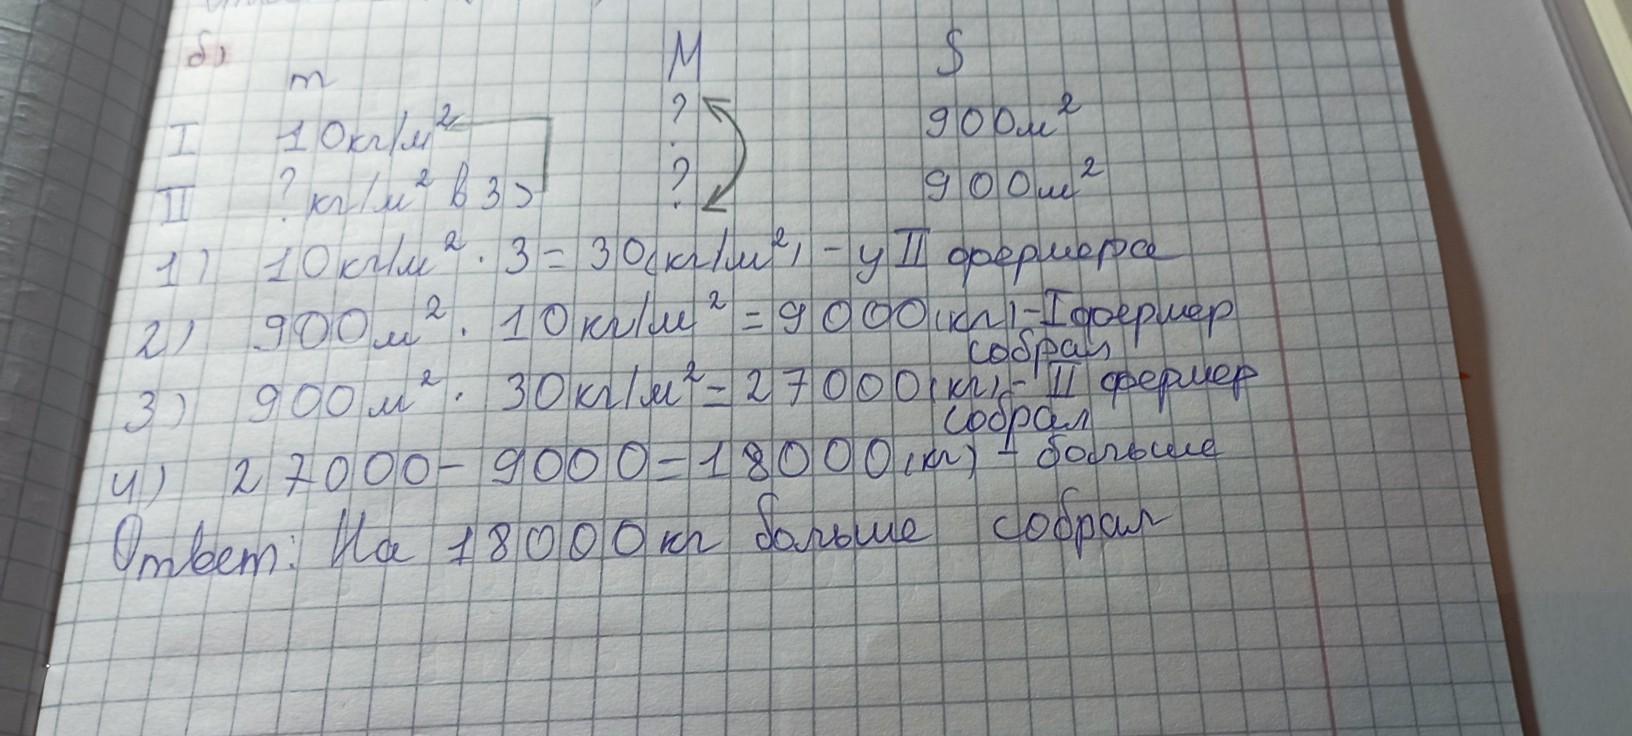 б)
m M S
I 10кг/м² ? 900м²
II ?кг/м² в 3> ? 900м²
1) 10кг/м² · 3 = 30(кг/м²) - у II фермера
2) 900м² · 10кг/м² = 9000(кг) - I фермер
собрал
3) 900м² · 30кг/м² = 27000(кг) - II фермер
собрал
4) 27000 - 9000 = 18000(кг) - больше
Ответ: На 18000кг больше собрал